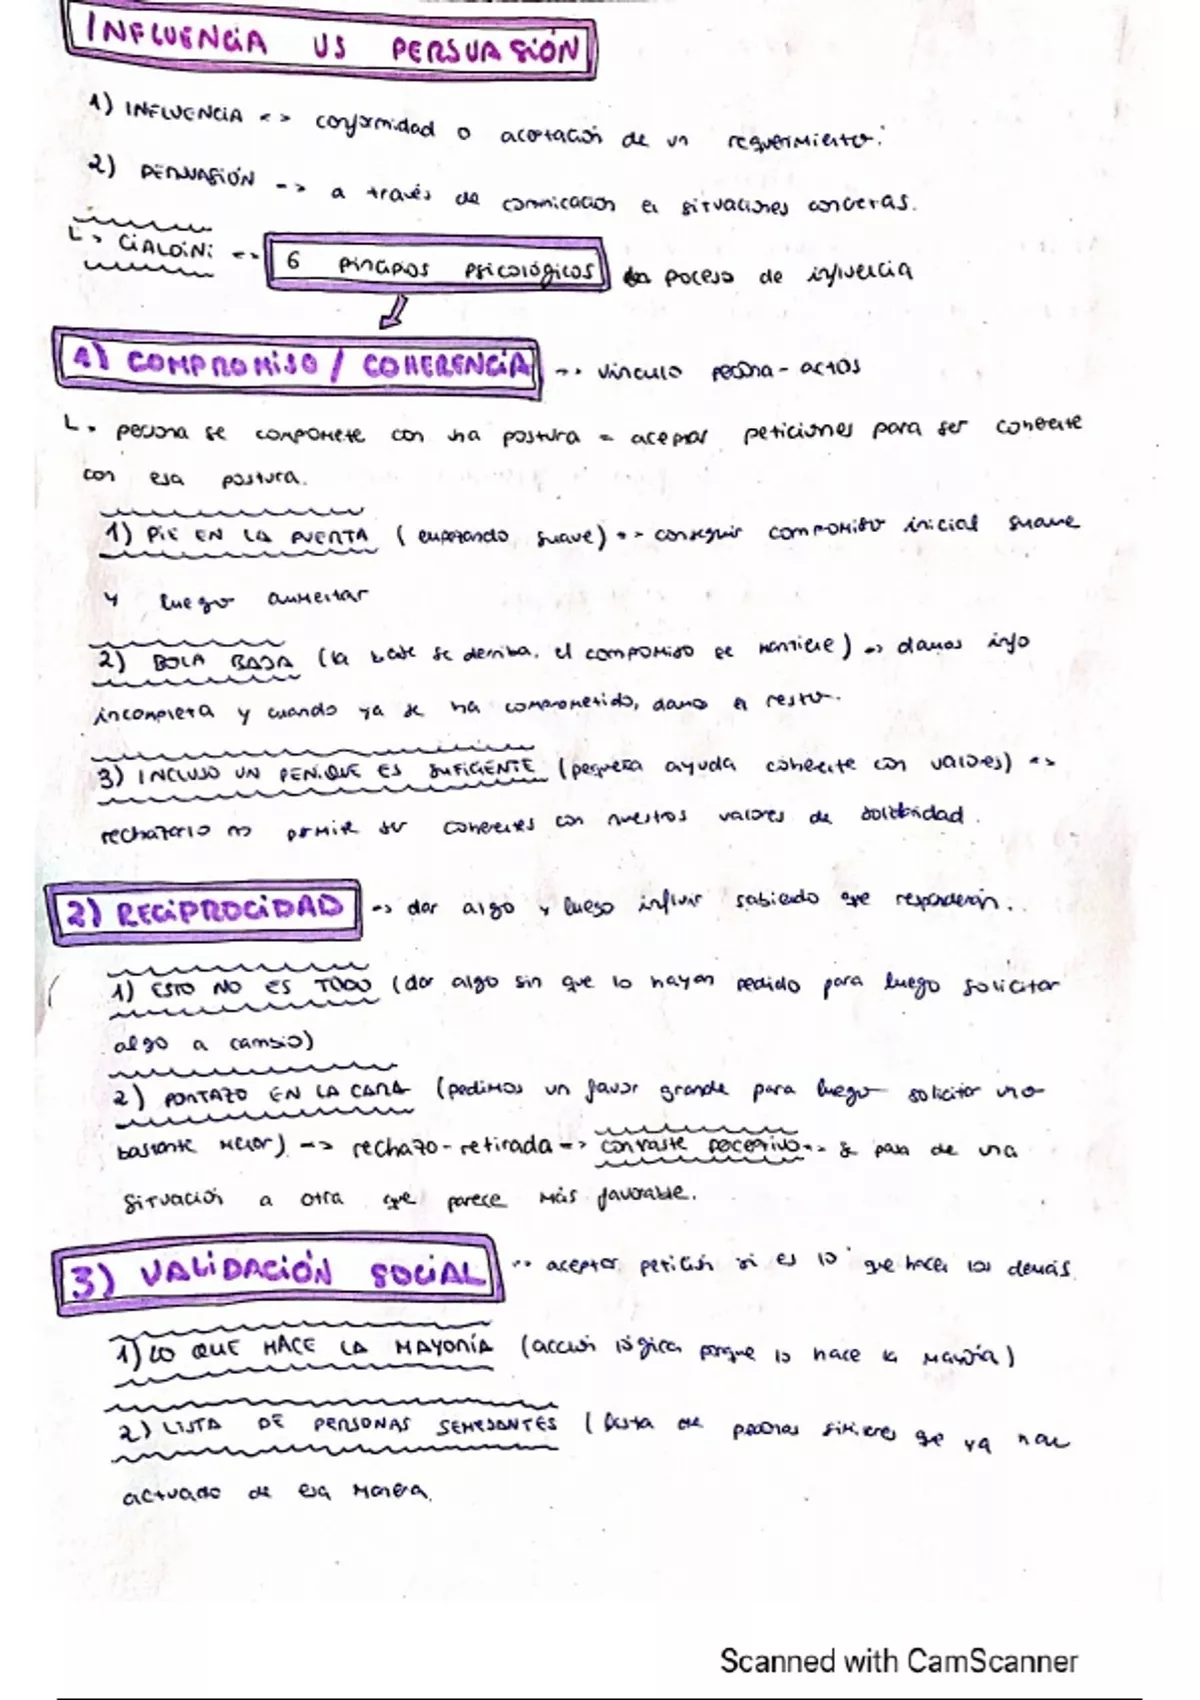 INFLUENCIA VS PERSUASIÓN
1) INFLUENCIA <> conformidad o aceptación de un requerimiento.
2) PERSUASIÓN --> a través de comunicación en situaciones concretas.
L> CIALDINI --> 6 principios psicológicos proceso de influencia
1) COMPROMISO / COHERENCIA --> vínculo persona - actos
L. persona se compromete con una postura = aceptar peticiones para ser coherente
con esa postura.
1) PIE EN LA PUERTA (empezando suave) --> conseguir compromiso inicial suave
y luego aumentar
2) BOLA BAJA (la base se derriba, el compromiso se mantiene) --> damos info
incompleta y cuando ya se ha comprometido, damos el resto.
3) INCLUSO UN PENIQUE ES SUFICIENTE (pequeña ayuda coherente con valores) -->
rechazarlo no permite ser coherentes con nuestros valores de solidaridad.
2) RECIPROCIDAD --> dar algo y luego influir sabiendo que responderán.
1) ESTO NO ES TODO (dar algo sin que lo hayan pedido para luego solicitar
algo a cambio)
2) PORTAZO EN LA CARA (pedimos un favor grande para luego solicitar uno
bastante menor) --> rechazo - retirada --> contraste perceptivo --> se pasa de una
situación a otra que parece más favorable.
3) VALIDACIÓN SOCIAL --> aceptar petición si es lo que hacen los demás.
1) LO QUE HACE LA MAYORÍA (acción lógica porque lo hace la mayoría)
2) LISTA DE PERSONAS SEMEJANTES (lista de personas similares que ya han
actuado de esa manera.
Scanned with CamScanner